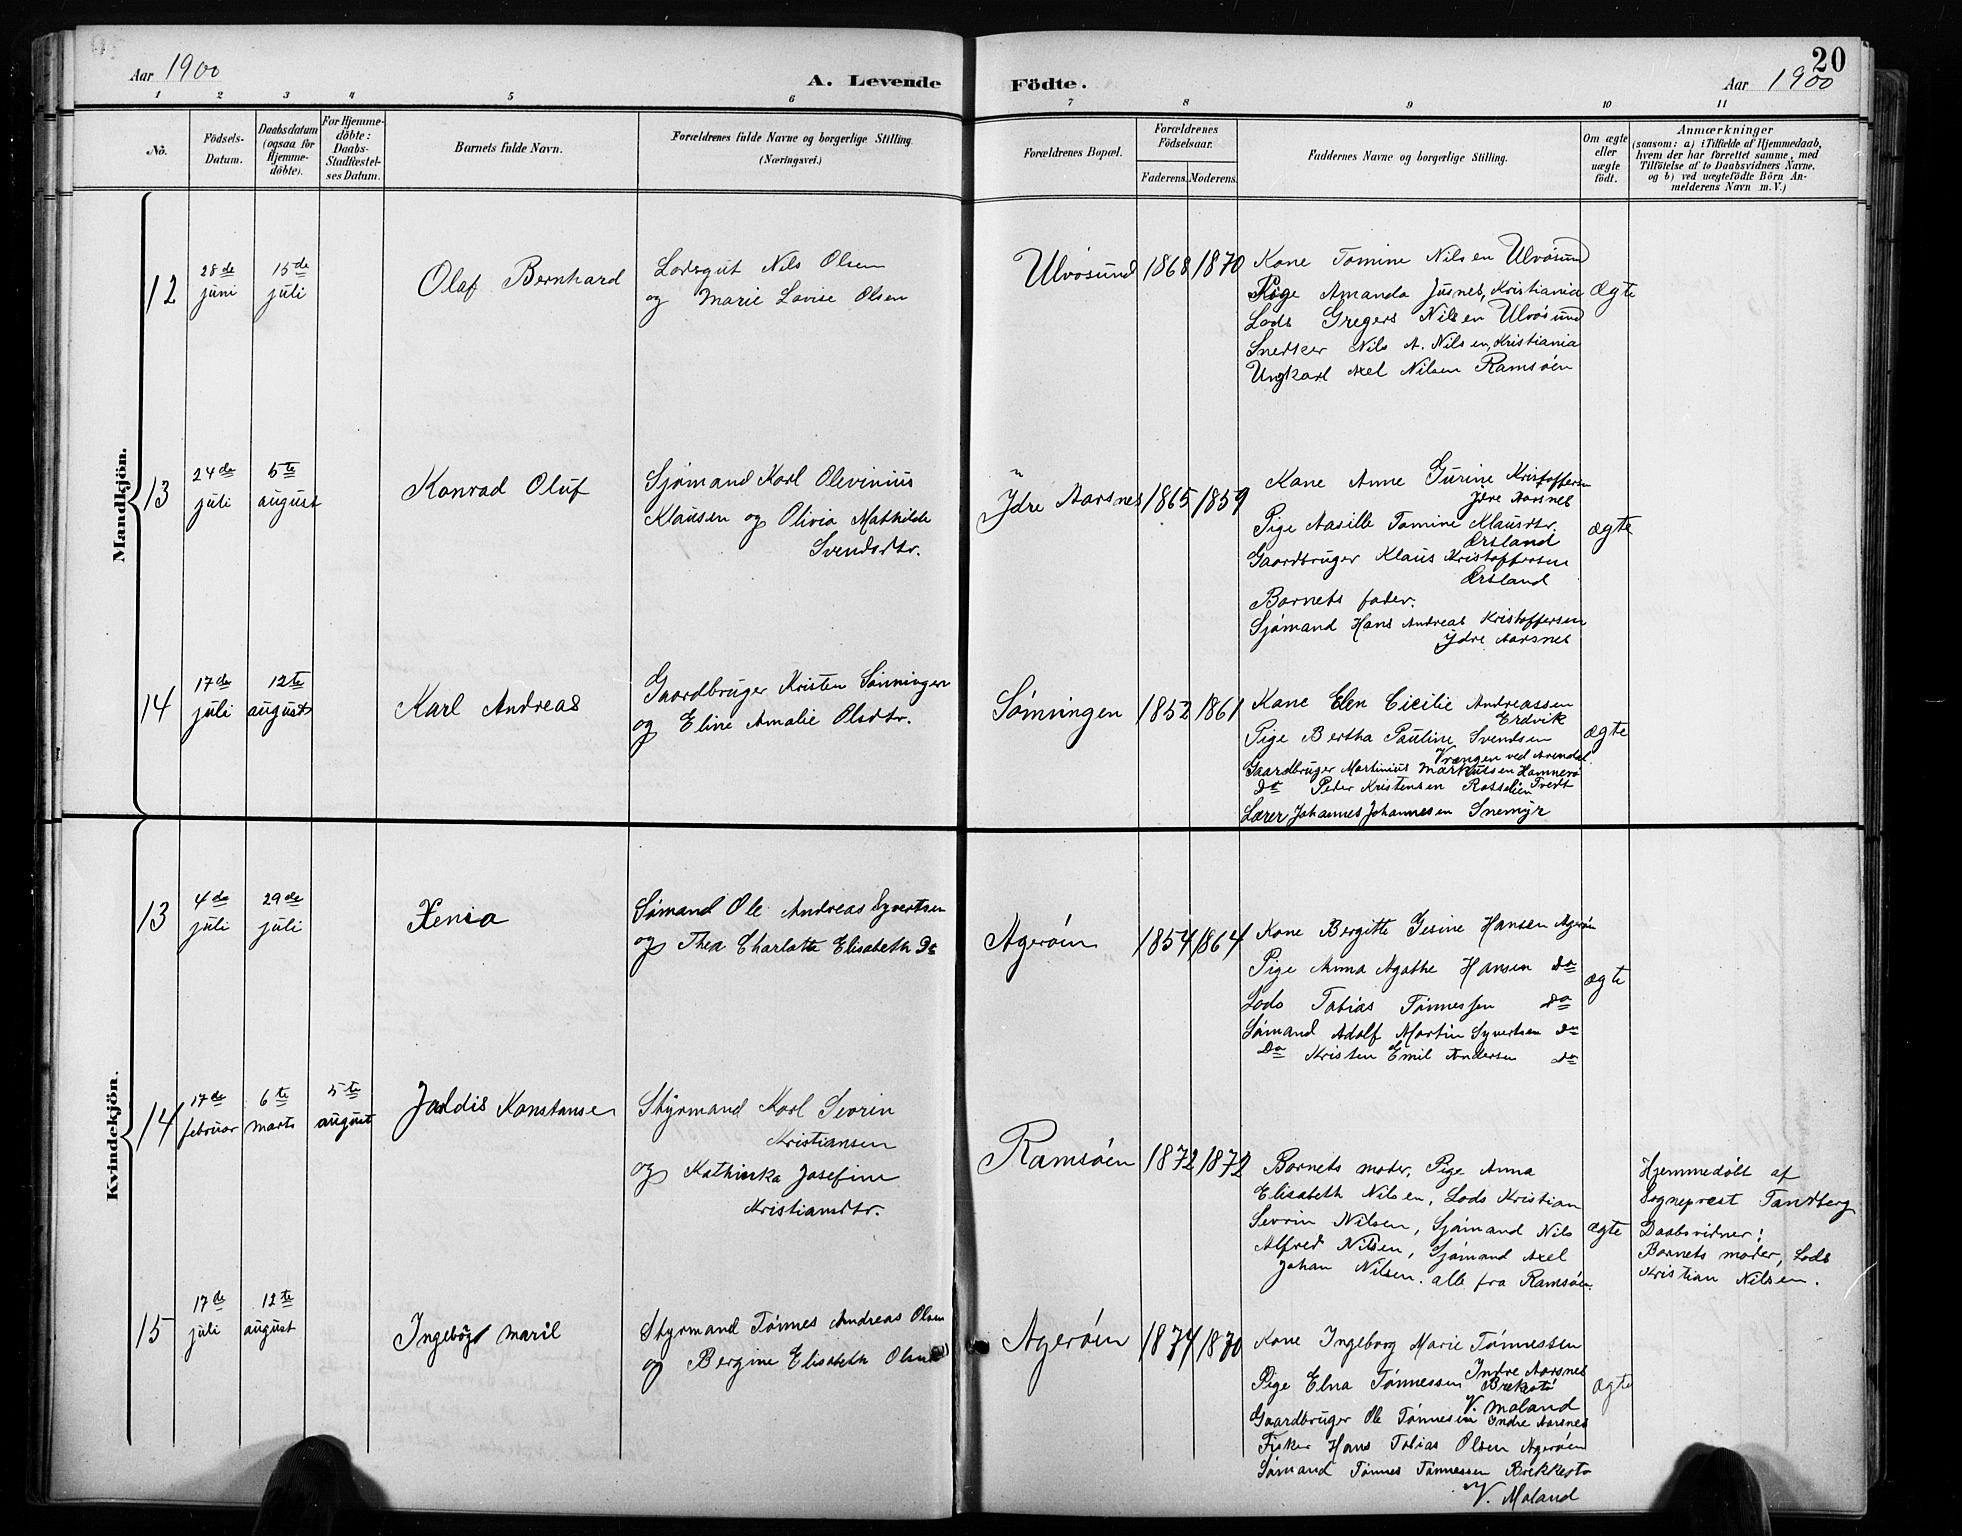 20
Aar 1900
A. Levende
Födte.
Aar 1900
1 2 3 4 5 6 7 8 9 10 11
No.
Födsels-
Datum.
Daabsdatum
(ogsaa for
Hjemme-
döbte).
For Hjemme-
döbte:
Daabs-
Stadfæstel-
ses Datum.
Barnets fulde Navn.
Forældrenes fulde Navne og borgerlige Stilling.
(Næringsvei.)
Forældrenes Bopæl.
Forældrenes
Födselsaar.
Faderens.
Moderens.
Faddernes Navne og borgerlige Stilling.
Om ægte
eller
uægte
födt.
Anmærkninger
(saasom: a) i Tilfælde af Hjemmedaab,
hvem der har forrettet samme, med
Tilföielse af to Daabsvidners Navne,
og b) ved uægtefödte Börn An-
melderens Navn m. V.)
Mandkjön.
12
28de
juni
15de
juli
Olaf Bernhard
Lodsgut Nils Olsen
og Marie Lovise Olsen
Ulvøsund
1868
1870
Kone Tomine Nilsen Ulvøsund
Pige Amanda Jusnes, Kristiania
Lods Gregers Nilsen Ulvøsund
Snedker Nils A. Nilsen, Kristiania
Ungkarl Axel Nilsen Ramsøen
Ægte
13
24de
juli
5te
august
Konrad Oluf
Sjømand Karl Olevinius
Klausen og Olivia Mathilde
Svendsdtr.
Ydre Aarsnes
1865
1859
Kone Anne Gurine Kristoffersen
Ydre Aarsnes
Pige Aasille Tomine Klausdtr.
Ørsland
Gaardbruger Klaus Kristoffersen
Ørsland
Barnets fader.
Sjømand Hans Andreas Kristoffersen
Ydre Aarsnes
ægte
14
17de
juli
12te
august
Karl Andreas
Gaardbruger Kristen Sønningen
og Eline Amalie Olsdtr.
Sønningen
1852
1861
Kone Elen Cicilie Andreassen
Erdvik
Pige Bertha Pauline Svendsen
Vrængen ved Arendal
Gaardbruger Martinius Markussen Hamnerø
do Peter Kristensen Rosselien Tvedt
Lærer Johannes Johannesen Snemyr
ægte
Kvindekjön.
13
4de
juli
29de
juli
Xenia
Sømand Ole Andreas Syvertsen
og Thea Charlotte Elisabeth Do
Agerøen
1854
1864
Kone Bergitte Gesine Hansen Agerøn
Pige Anna Agathe Hansen do
Lods Tobias Tønnessen do
Sømand Adolf Martin Syvertsen do
Do Kristen Emil Andersen do
ægte
14
17de
februar
6te
marts
5te
august
Joldis Konstanse
Styrmand Karl Sevrin
Kristiansen
og Kathinka Josefine
Kristiansdtr.
Ramsøen
1872
1872
Barnets moder, Pige Anna
Elisabeth Nilsen, Lods Kristian
Sevrin Nilsen, Sjømand Nils
Alfred Nilsen, Sjømand Axel
Johan Nilsen. alle fra Ramsøen.
ægte
Hjemmedøbt af
Sogneprest Tandberg
Daabsvidner:
Barnets moder, Lods
Kristian Nilsen.
15
17de
juli
12te
august
Ingebøgd Marie
Styrmand Tønnes Andreas Olsen
og Bergine Elisabeth Olsen
Agerøen
1874
1870
Kone Ingeborg Marie Tønnessen
Indre Aarsnes
Pige Elna Tønnessen Brekstø
V. Moland
Gaardbruger Ole Tønnesen Indre Aarsnes
Fisker Hans Tobias Olsen Agerøen
Sømand Tønnes Tønnessen Brekkestø
V. Moland
ægte